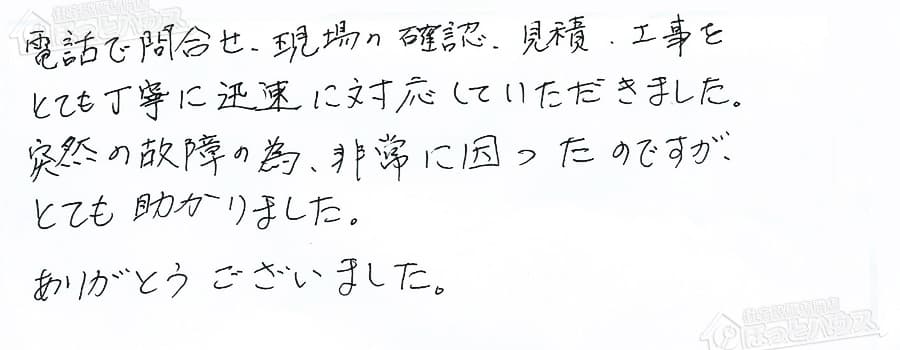 電話で問合せ、現場の確認、見積、工事を
とても丁寧に迅速に対応していただきました。
突然の故障の為、非常に困ったのですが、
とても助かりました。
ありがとうございました。
住宅設備専門店
ほっとハウス